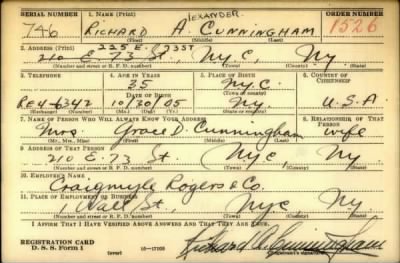 SERIAL NUMBER 1. NAME (Print) ORDER NUMBER
ALEXANDER
746 RICHARD A CUNNINGHAM 1526
(First) (Middle) (Last)
2. ADDRESS (Print) 225 E. 73 ST
210 E. 73 ST. NYC, NY
(Number and street or R. F. D. number) (Town) (County) (State)
3. TELEPHONE 4. AGE IN YEARS 5. PLACE OF BIRTH 6. COUNTRY OF CITIZENSHIP
35 NYC.
DATE OF BIRTH (Town or county)
RE4-6342 10/30/05 NY. U.S.A
(Exchange) (Number) (Mo.) (Day) (Yr.) (State or country)
7. NAME OF PERSON WHO WILL ALWAYS KNOW YOUR ADDRESS 8. RELATIONSHIP OF THAT PERSON
Mrs. Grace D. Cunningham wife
(Mr., Mrs., Miss) (First) (Middle) (Last)
9. ADDRESS OF THAT PERSON
210 E. 73 St. NYC, NY
(Number and street or R. F. D. number) (Town) (County) (State)
10. EMPLOYER'S NAME
Craigmyle Rogers & Co.
11. PLACE OF EMPLOYMENT OR BUSINESS
1 Wall St., NYC NY
(Number and street or R. F. D. number) (Town) (County) (State)
I AFFIRM THAT I HAVE VERIFIED ABOVE ANSWERS AND THAT THEY ARE TRUE.
REGISTRATION CARD
D. S. S. FORM 1 (over) 16—17105 Richard A. Cunningham